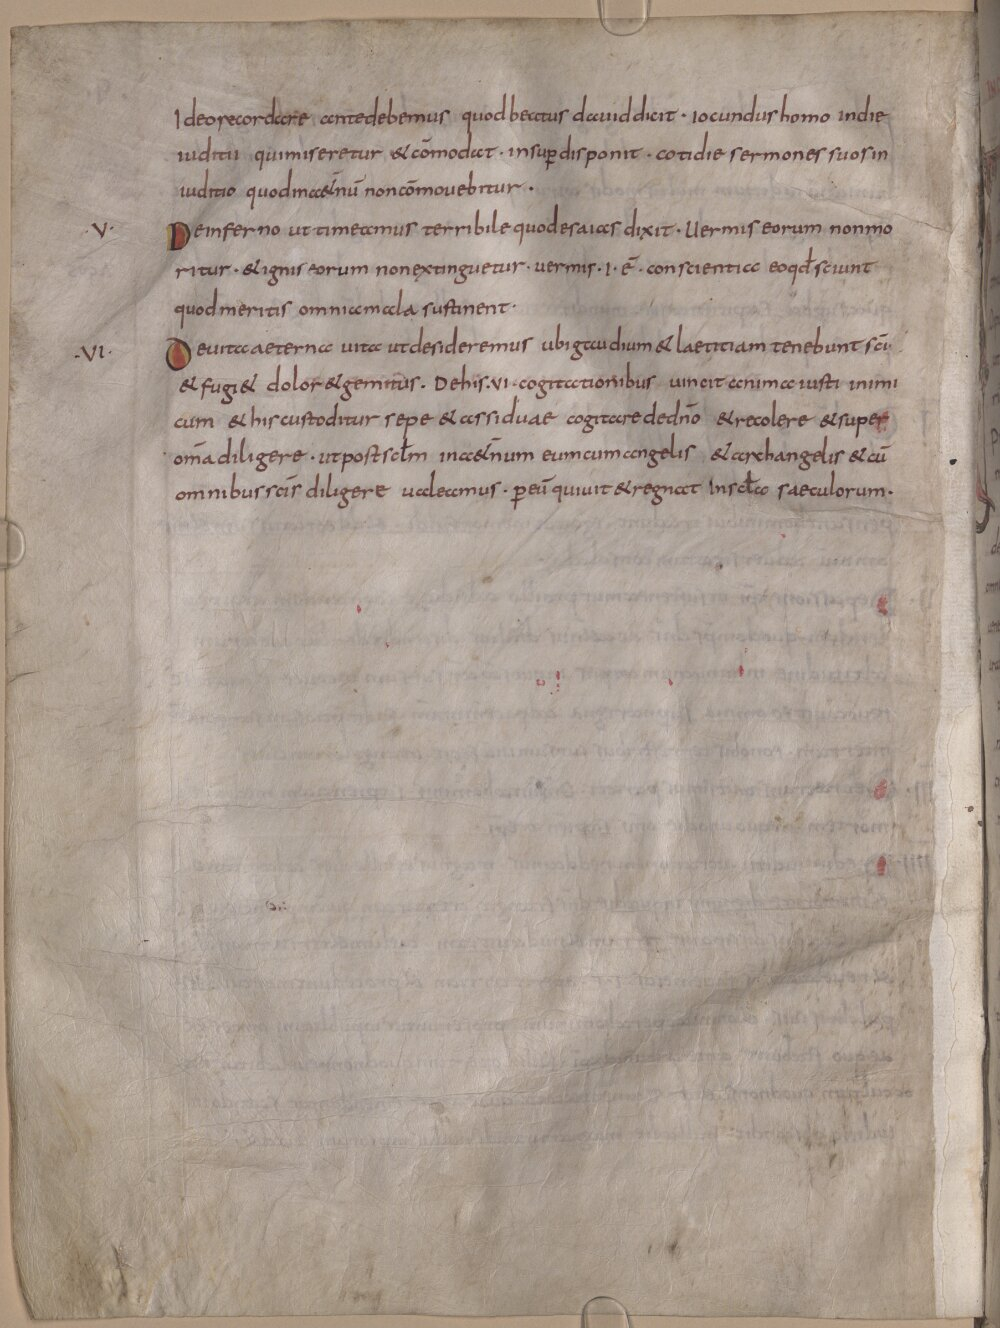 Ideo recordare ante debemus quod beatus dauid dicit · iocundus homo in die
iuditii qui miseretur & cōmodat · insup disponit · cotidie sermones suos in
iuditio quod in aet̄nū non cōmouebitur ·
·V· De inferno ut timeamus terribile quod esaias dixit · Uermis eorum non mo
ritur · & ignis eorum non extinguetur · uermis · i · ē · conscientia eo qđ sciunt
quod meritis omnia mala sustinent ·
·VI· De uita aeterna uita ut desideremus ubi gaudium & laetitiam tenebunt sc̄i
& fugi& dolor & gemitus · De his · VI · cogitationibus uincit anima iusti inimi
cum & his custoditur sepe & assiduae cogitare de dn̄o & recolere & super
om̄a diligere · ut post scl̄m in aet̄num eum cum angelis & archangelis & cū
omnibus sc̄is diligere ualeamus · p eū qui uiuit & regnat In scl̄a saeculorum ·